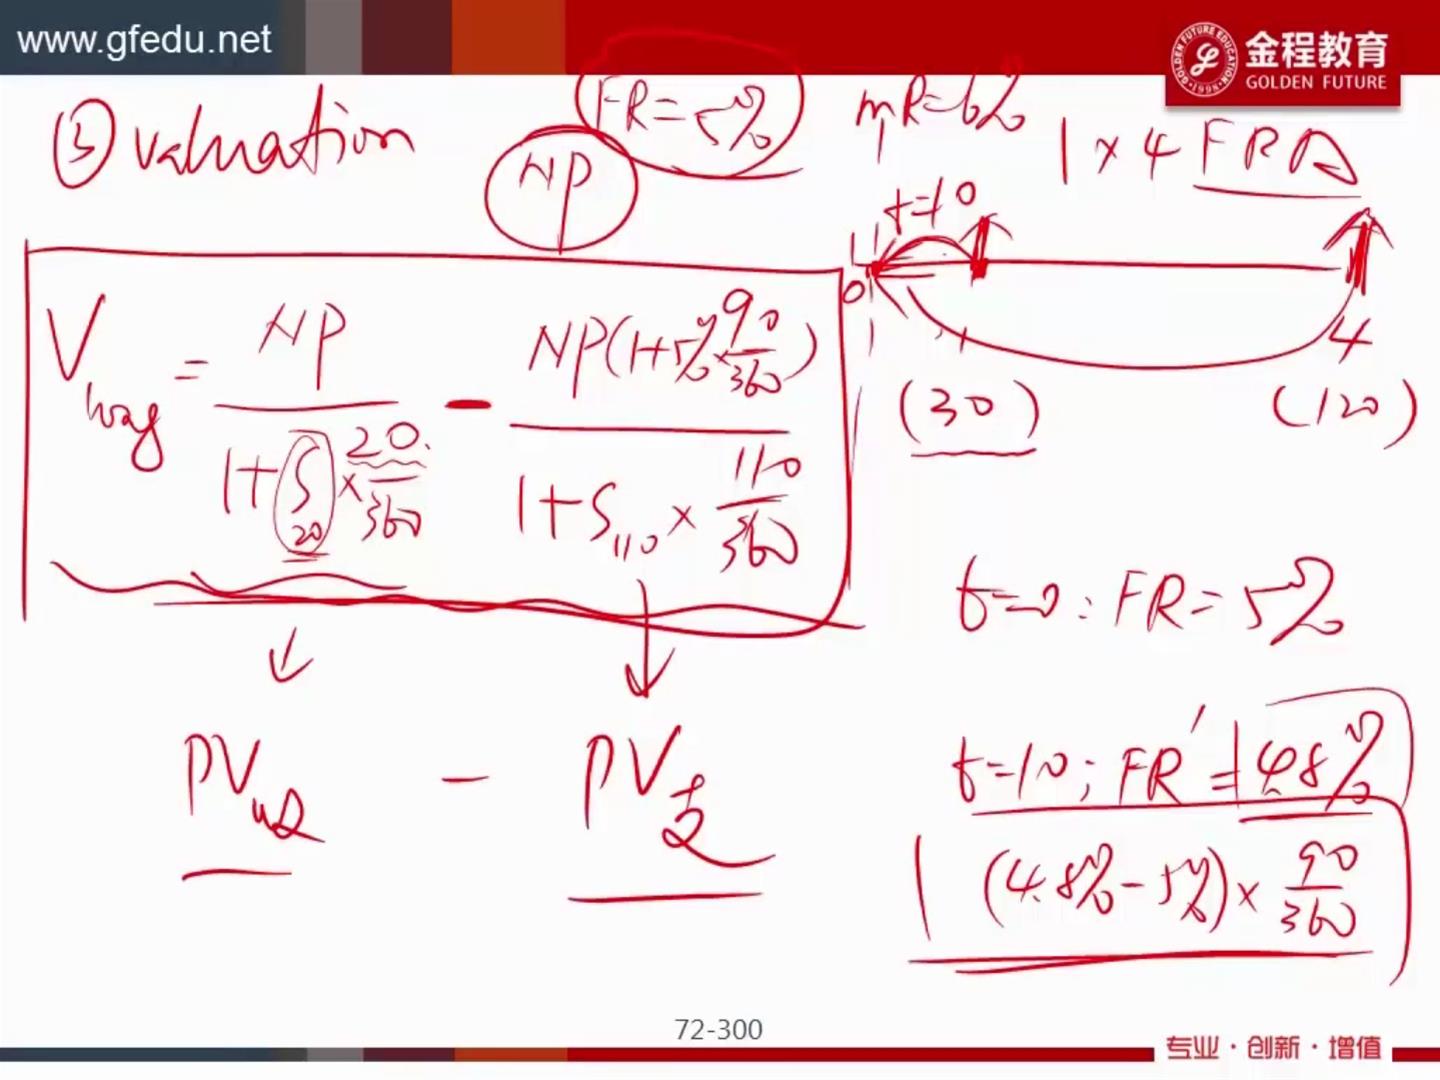 www.gfedu.net
金程教育
GOLDEN FUTURE
③ valuation
FR=5%
MR=6%
NP
1×4 FRA
t=10
0
1
4
(30)
(120)
V long = NP / (1+S20×20/360) - NP(1+5%×90/360) / (1+S110×110/360)
t=0: FR=5%
t=10; FR'=4.8%
(4.8%-5%)×90/360
PV收 - PV支
72-300
专业·创新·增值